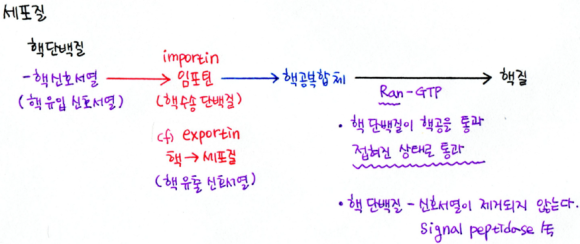 세포질
핵단백질
- 핵신호서열
(핵유입 신호서열)
importin
임포틴
(핵수송 단백질)
cf) exportin
핵 → 세포질
(핵유출 신호서열)
핵공복합체
Ran-GTP
핵질
• 핵단백질이 핵공을 통과
접혀진 상태로 통과
• 핵단백질 - 신호서열이 제거되지 않는다.
Signal peptidase